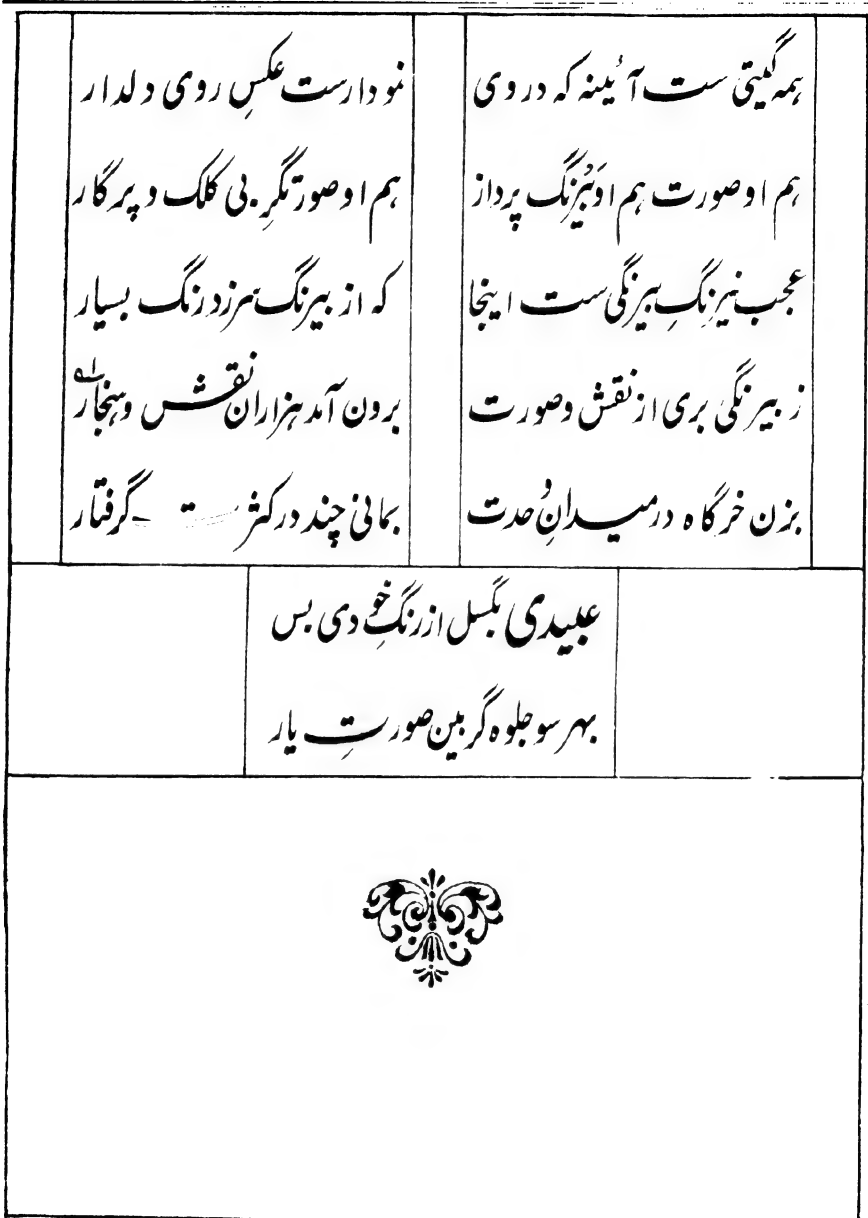 همه گیتی ست آئینه که در وی
نمودارست عکسِ روی دلدار
هم او صورت هم او نیرنگ پرداز
هم او صورتگرِ بی کلک و پرگار
عجب نیرنگِ بیرنگی ست اینجا
که از بیرنگ سرزد رنگ بسیار
ز بیرنگی بری از نقش وصورت
برون آمد هزاران نقش وهنجار
بزن خرگاه در میدانِ وحدت
بمانی چند در کثرت گرفتار
عبیدی بگسل از رنگِ خودی بس
بهر سو جلوه گر بین صورتِ یار